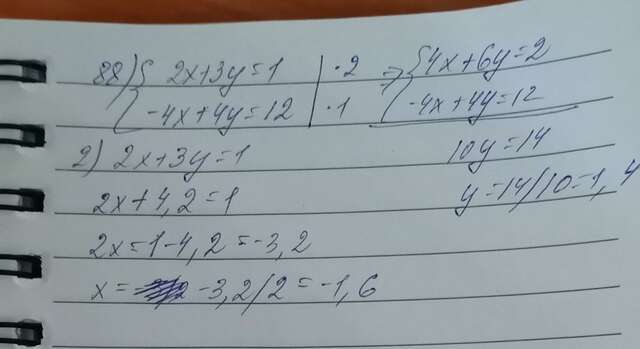 88) { 2x+3y=1 | ·2 => { 4x+6y=2
-4x+4y=12 | ·1 -4x+4y=12
2) 2x+3y=1 10y=14
2x+4,2=1 y=14/10=1,4
2x=1-4,2=-3,2
x= -3,2/2=-1,6